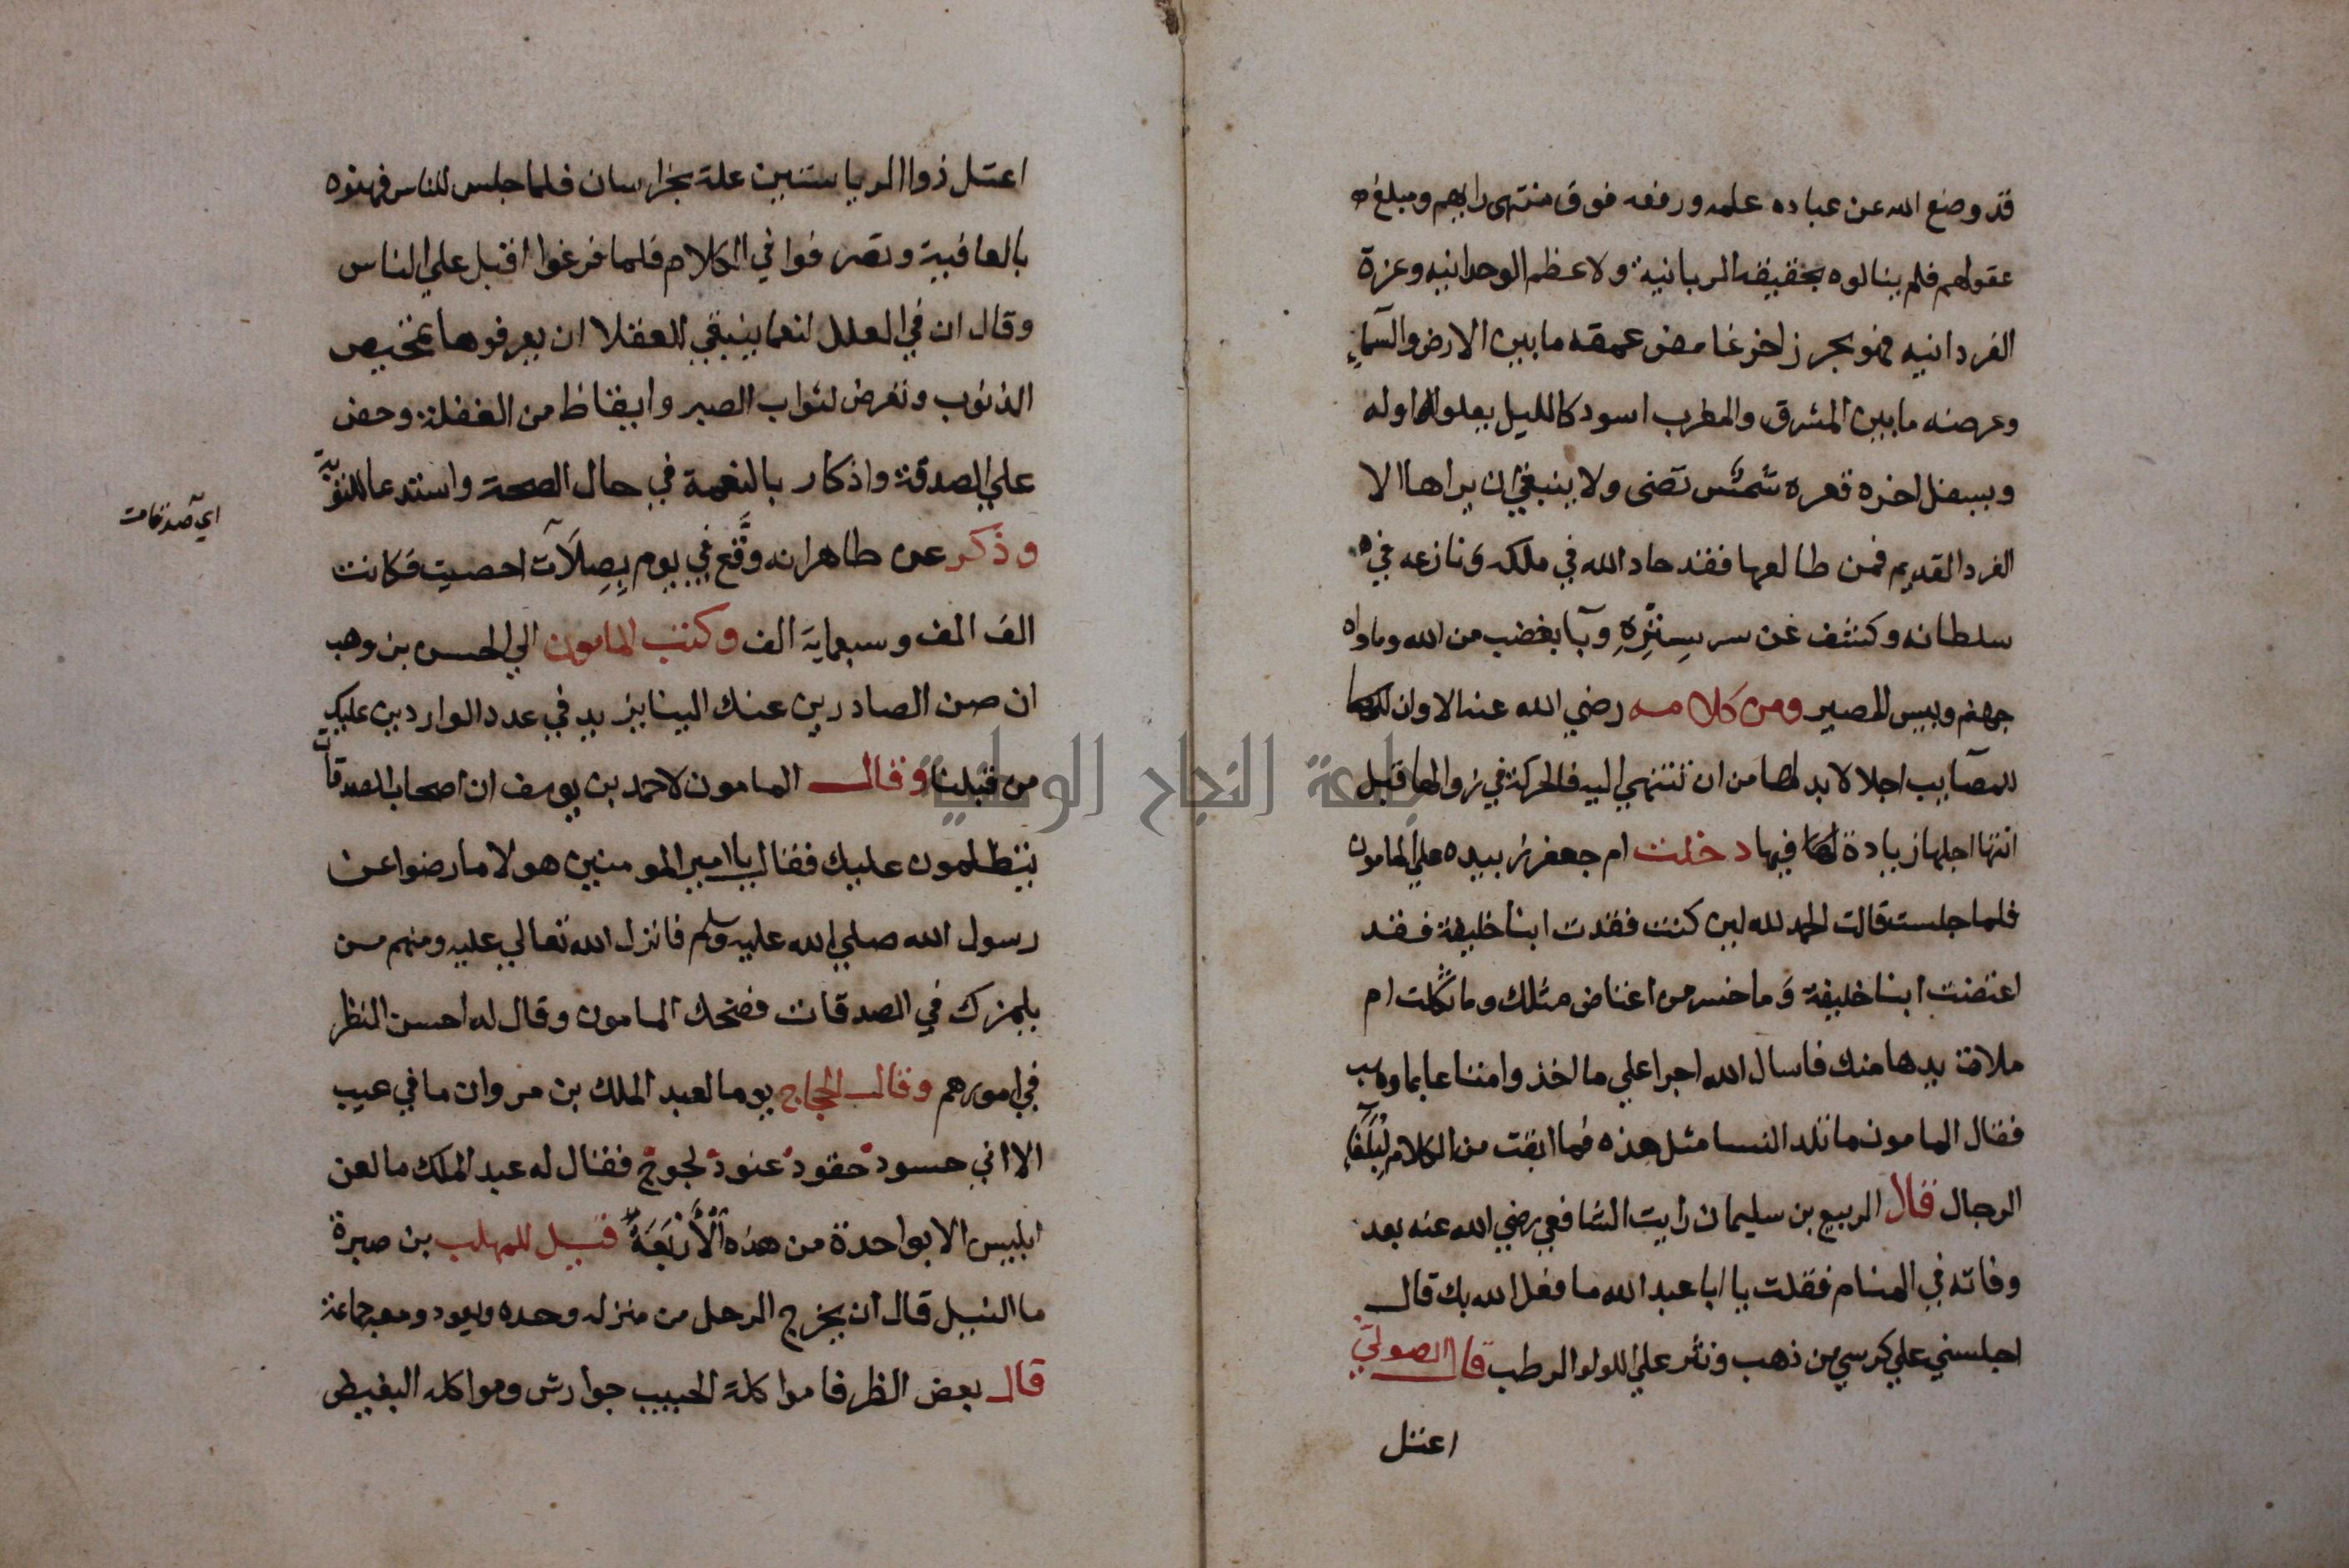 قد وضع الله عن عباده علمه ورفعه فوق منتهى رايهم ومبلغ
عقولهم فلم ينالوه بحقيقة الربانية ولا عظم الوحدانيه وعزة
الفردانيه فهو بحر زاخر غامض عمقه ما بين الارض والسمآء
وعرضه ما بين المشرق والمغرب اسود كالليل يعلو اوله
ويسفل اخره قعره شمس تضى ولا ينبغي ان يراها الا
الفرد القديم فمن طالعها فقد حاد الله في ملكه ونازعه في
سلطانه وكشف عن سر سِتْرِهِ وبآ بغضب من الله وماواه
جهنم وبيس المصير ومن كلامه رضي الله عنه الا وان
للمصآيب اجلا لا بد لها من ان تنتهي اليه فالحركة في زوالها قبل
انتها اجلها زيادة لها فيها دخلت ام جعفر زبيده علي المامون
فلما جلست قالت الحمد لله لين كنت فقدت ابنا خليفة فقد
اعتضت ابنا خليفة وما خسر من اعتاض مثلك وما ثكلت ام
ملات يدها منك فاسال الله اجرا علي ما اخذ وامتاعا بما وهب
فقال المامون ما تلد النسا مثل هذه فما ابقت من الكلام لِبُلَغَآءِ
الرجال قال الربيع بن سليمان رايت الشافعي رضي الله عنه بعد
وفاته في المنام فقلت يا ابا عبد الله ما فعل الله بك قال
اجلسني علي كرسي من ذهب ونثر علي اللولو الرطب قال الصولي
اعتل
اعتل ذوا الرياستين علة بخراسان فلما جلس للناس فهنوه
بالعافية وتصرفوا في الكلام فلما فرغوا اقبل علي الناس
وقال ان في العلل لنعما ينبغي للعقلا ان يعرفوها تمحيص
الذنوب وتعرض لثواب الصبر وايقاظ من الغفلة وحض
علي الصدقة واذكار بالنعمة في حال الصحة واستدعا للتوبة
اي صدقات
وذكر عن طاهر انه وقَّع في يوم بِصِلَآت احصيت فكانت
الف الف وسبعماية الف وكتب المامون الي الحسن بن وهب
ان صن الصادرين عنك الينا يزيد في عدد الواردين عليك
من قبلنا وقال المامون لاحمد بن يوسف ان اصحاب الصدقات
يتظلمون عليك فقال يا امير المومنين هولا ما رضوا عن
رسول الله صلي الله عليه وسلم فانزل الله تعالي عليه ومنهم من
يلمزك في الصدقات فضحك المامون وقال له احسن النظر
في امورهم وقال الحجاج يوما لعبد الملك بن مروان ما في عيب
الا اني حسود حقود عنود لجوج فقال له عبد الملك ما لعن
ابليس الا بواحدة من هذه الْأَرْبَعَة قيل للمهلب بن صبرة
ما النبيل قال ان يخرج الرجل من منزله وحده ويعود ومعه جماعة
قال بعض الظرفا مواكلة الحبيب جوارش ومواكله البغيض
جامعة النجاح الوطنية